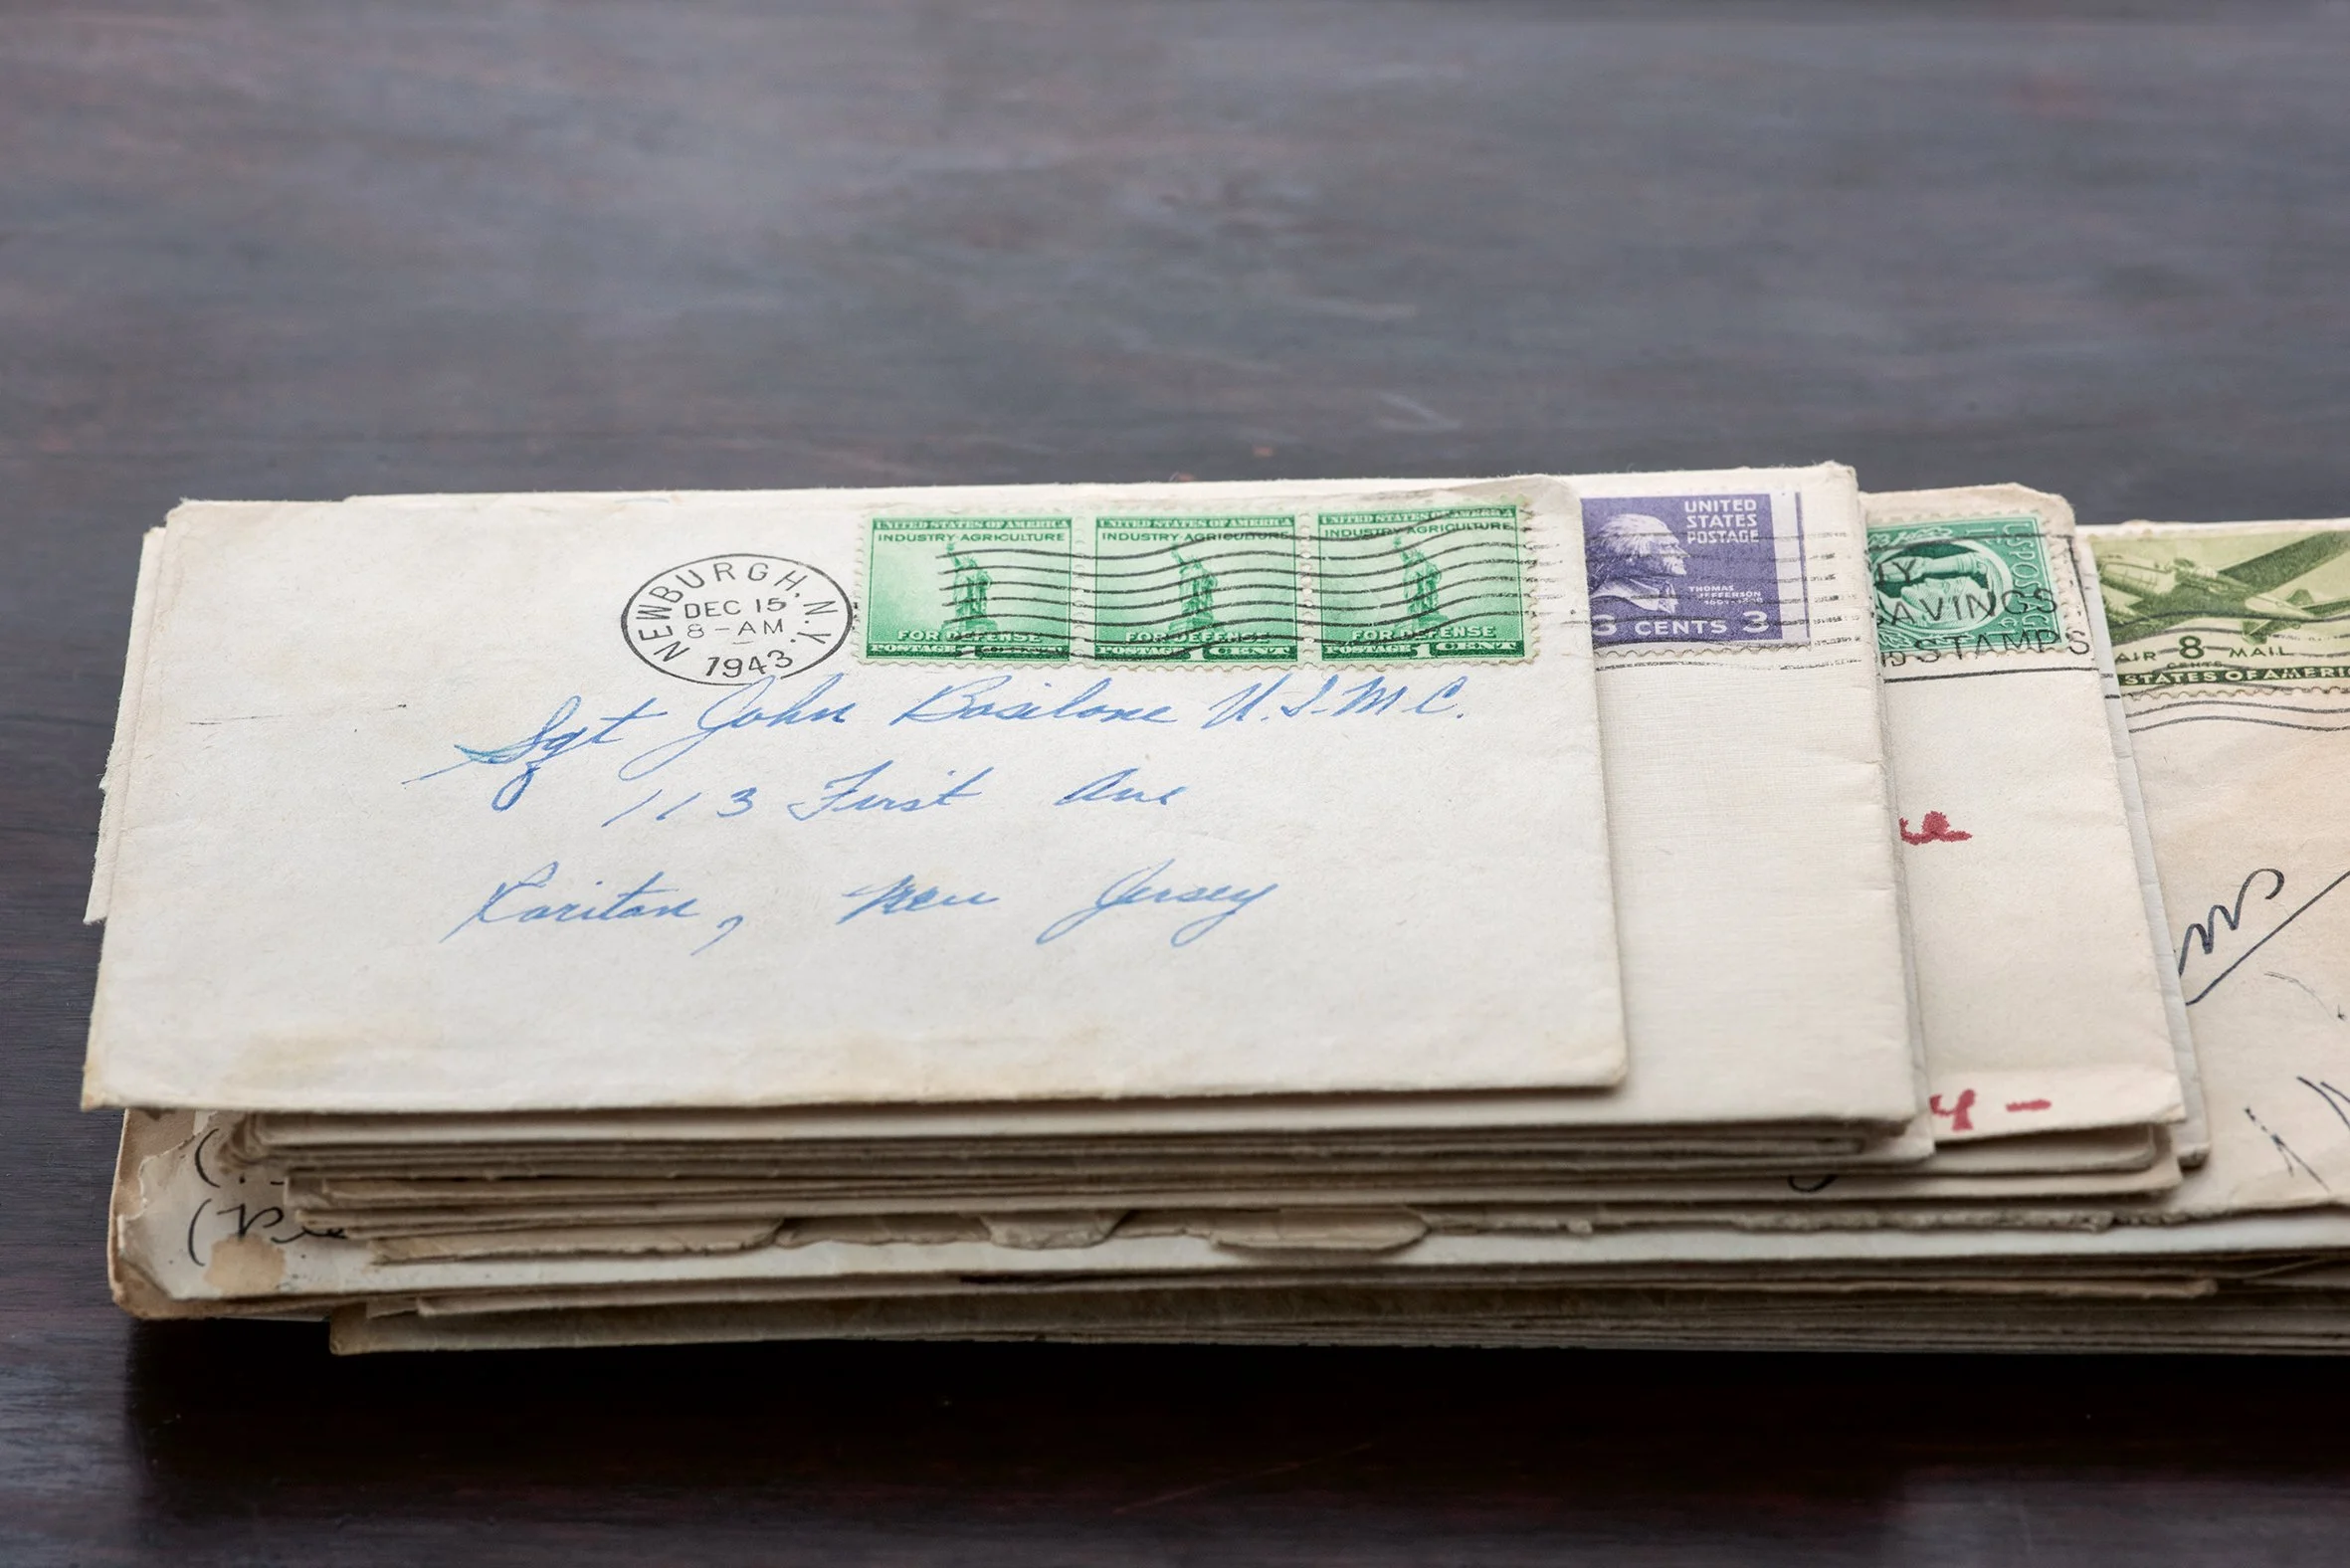 NEWBURGH, N.Y.
DEC 15
8-AM
1943
UNITED STATES OF AMERICA
INDUSTRY AGRICULTURE
FOR DEFENSE
POSTAGE 1 CENT
UNITED STATES OF AMERICA
INDUSTRY AGRICULTURE
FOR DEFENSE
POSTAGE 1 CENT
UNITED STATES OF AMERICA
INDUSTRY AGRICULTURE
FOR DEFENSE
POSTAGE 1 CENT
Sgt John Basilone U.S.M.C.
113 First Ave
Raritan, New Jersey
UNITED
STATES
POSTAGE
THOMAS
JEFFERSON
3 CENTS 3
SAVINGS
STAMPS
AIR 8 MAIL
CENTS
STATES OF AMERI